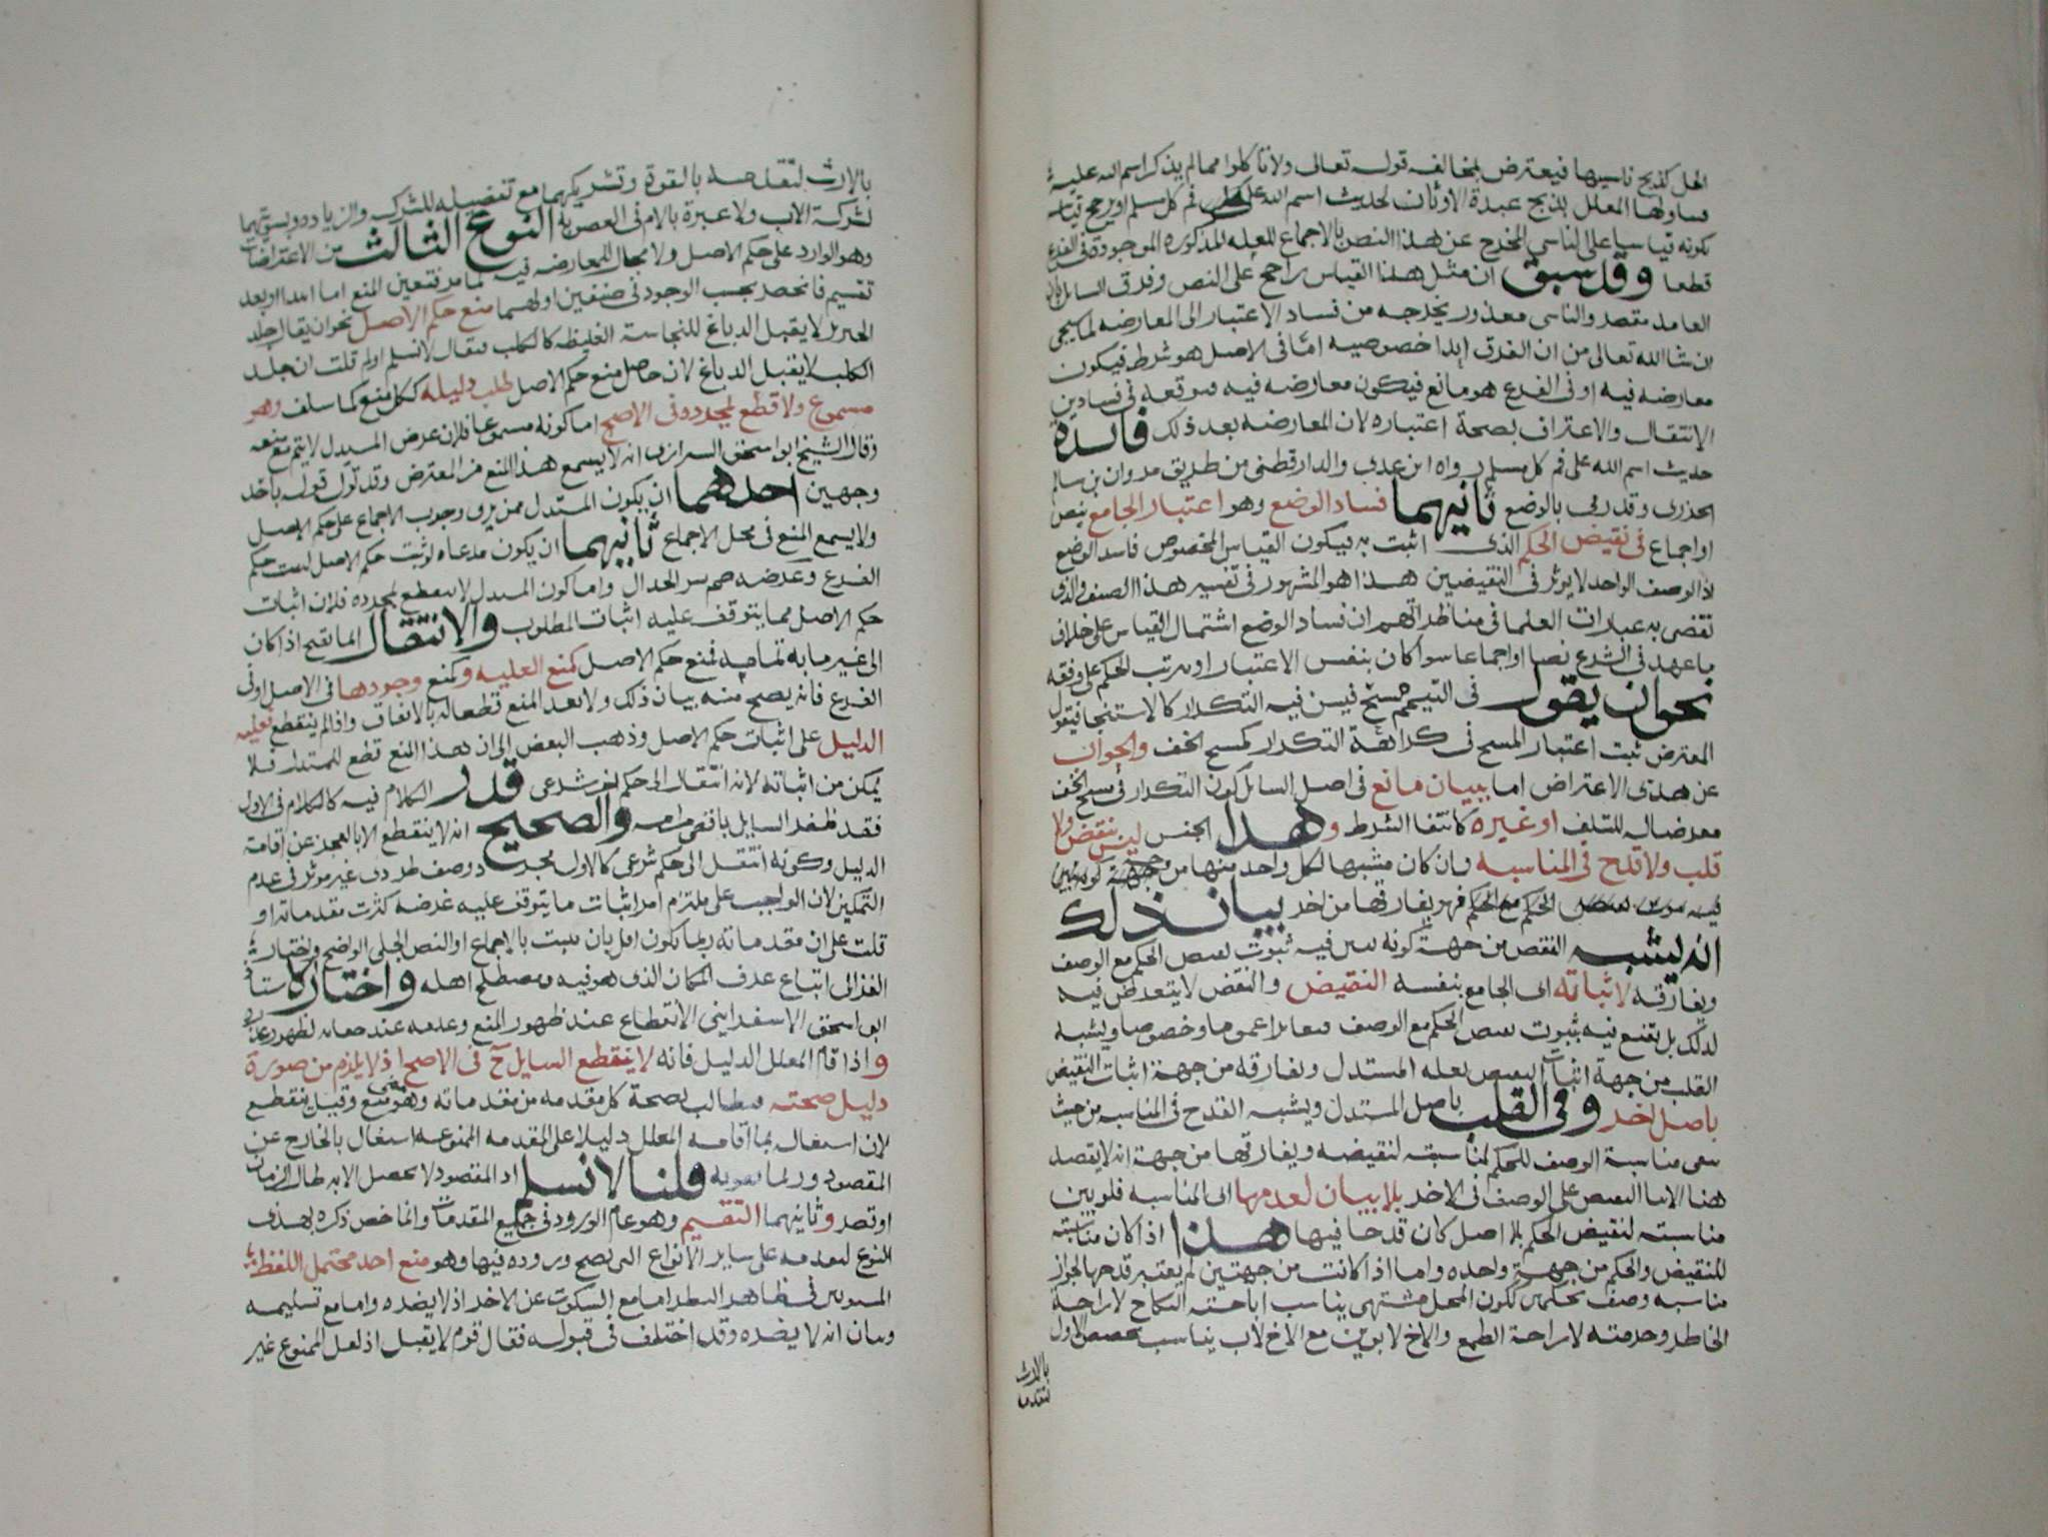 الحل كذبح ناسيها فيعترض بمخالفه قوله تعالى ولا تأكلوا مما لم يذكر اسم الله عليه
فساولها المعلل بذبح عبدة الاوثان لحديث اسم الله على فم كل مسلم او يرجح قياسه
بكونه قياسيا على الناسي المخرج عن هذا النص بالاجماع للعله المذكوره الموجودة فى الفرع
قطعا وقد سبق ان مثل هذا القياس راجح على النص وفرق السايل بان
العامد مقصر والناسى معذور يخرجه من فساد الاعتبار الى المعارضه لما سيجى
ان شا الله تعالى من ان الفرق ابدا خصوصيه اما فى الاصل هو شرط فيكون
معارضه فيه او فى الفرع هو مانع فيكون معارضه فيه فتوقعه فى فسادين
الانتقال والاعتراف بصحة اعتباره لان المعارضه بعد ذلك فائدة
حديث اسم الله على فم كل مسلم رواه ابن عدى والدارقطنى من طريق مروان بن سالم
الجزرى وقد رمى بالوضع ثانيهما فساد الوضع وهو اعتبار الجامع بنص
او اجماع فى نقيض الحكم الذى اثبت به فيكون القياس المخصوص فاسد الوضع
اذ الوصف الواحد لا يوثر فى النقيضين هذا هو المشهور فى تفسير هذا الصنف والذى
تقضى به عبارات العلما فى مناظراتهم ان فساد الوضع اشتمال القياس على خلاف
ما عهد فى الشرع نصا او اجماعا سوا كان بنفس الاعتبار او بترتب الحكم على وفقه
نحو ان يقول فى التيمم مسح فيسن فيه التكرار كالاستنجا فيقول
المعترض ثبت اعتبار المسح فى كراهة التكرار كمسح الخف والجواب
عن هذى الاعتراض اما ببيان مانع فى اصل السايل كون التكرار فى مسح الخف
معرضا له للتلف او غيره كانتفا الشرط وهذا الجنس ليس بنقض ولا
قلب ولا قدح فى المناسبه وان كان مشبها لكل واحد منها من جهة
الحكم مع الحكم فهو يفارقها من اخر بيان ذلك
انه يشبه النقض من جهة كونه بين فيه ثبوت نقيض الحكم مع الوصف
ويفارقه لاثباته اى الجامع بنفسه النقيض والنقض لا يتعرض فيه
لذلك بل يقنع فيه بثبوت نقيض الحكم مع الوصف فتغايرا عموما وخصوصا ويشبه
القلب من جهة اثبات النقيض بعله المستدل ويفارقه من جهة اثبات النقيض
باصل اخر وفى القلب باصل المستدل ويشبه القدح فى المناسبه من حيث
ينفى مناسبة الوصف للحكم لمناسبته لنقيضه ويفارقها من جهة انه لا يقصد
هنا الا بنا النقيض على الوصف فى الاخر بلا بيان لعدمها اى المناسبه فلو بين
مناسبته لنقيض الحكم بلا اصل كان قدحا فيها هذا اذا كان مناسبته
للنقيض والحكم من جهة واحده واما اذا كانت من جهتين لم يعتبر قدحها لجواز
مناسبه وصف بحكمين ككون المحل مشتهى يناسب اباحته النكاح لاراحة
الخاطر وحرمته لاراحة الطمع والاخ لابوين مع الاخ لاب يناسب تخصيص الاول
بالارث
لتقدمه
بالارث لتقدمه بالقوة وتشريكهما مع تفضيله للشركه والزياده وتسويتهما
لشركة الاب ولا عبرة بالام فى العصوبة النوع الثالث من الاعتراضات
وهو الوارد على حكم الاصل ولا مجال للمعارضه فيه لما مر فتعين المنع اما ابتدا او بعد
تقسيم فانحصر بحسب الوجود فى صنفين اولهما منع حكم الاصل نحو ان يقال جلد
الخنزير لا يقبل الدباغ للنجاسة الغليظه كالكلب فيقال لا نسلم اولم قلت ان جلد
الكلب لا يقبل الدباغ لان حاصل منع حكم الاصل طلب دليله ككل منع كما سلف وهو
مسموع ولا قطع لمجرده فى الاصح اما كونه مسموعا فلان غرض المستدل لا يتم مع منعه
وقال الشيخ ابو اسحق الشيرازى انه لا يسمع هذا المنع من المعترض وقد تؤل قوله باحد
وجهين احدهما ان يكون المستدل ممن يرى وجوب الاجماع على حكم الاصل
ولا يسمع المنع فى محل الاجماع ثانيهما ان يكون مدعاه لو ثبت حكم الاصل لثبت حكم
الفرع وغرضه الجدال واما كون المستدل لا ينقطع لمجرده فلان اثبات
حكم الاصل مما يتوقف عليه اثبات المطلوب والانتقال انما يقبح اذا كان
الى غير ما به تمامه فمنع حكم الاصل كمنع العليه وكمنع وجودها فى الاصل او فى
الفرع فانه يصح منه بيان ذلك ولا يعد المنع قطعا له بالاتفاق واذا لم ينقطع فعليه
الدليل على اثبات حكم الاصل وذهب البعض الى ان هذا المنع قطع للمستدل فلا
يمكن من اثباته لانه انتقال الى حكم اخر شرعى قدر الكلام فيه كالكلام فى الاول
فقد ظفر السايل باقصى مرامه والصحيح انه لا ينقطع الا بالعجز عن اقامة
الدليل وكونه انتقل الى حكم شرعى كالاول مجرد وصف طردى غير موثر فى عدم
التمكين لان الواجب على ملتزم امر اثبات ما يتوقف عليه غرضه كثرت مقدماته او
قلت على ان مقدماته ربما يكون اقل بان يثبت بالاجماع او النص الجلى الواضح واختار
الغزالى اتباع عرف المكان الذى هو فيه ومصطلح اهله واختار الاستاذ
ابو اسحق الاسفراينى الانقطاع عند ظهور المنع وعدمه عند خفائه
واذا اقام المعلل الدليل فانه لا ينقطع السايل ح فى الاصح اذ لا يلزم من صورة
دليل صحته فيطالب بصحة كل مقدمه من مقدماته وهو منع وقيل ينقطع
لان اشتغاله بما اقامه المعلل دليلا على المقدمه الممنوعه اشتغال بالخارج عن
المقصود وربما يفوته قلنا لا نسلم اذ المقصود لا يحصل الا به طال الزمان
او قصر وثانيهما التقسيم وهو عام الورود فى جميع المقدمات وانما خص ذكره بهذى
النوع لتقدمه على ساير الانواع التى يصح وروده فيها وهو منع احد محتمل اللفظ
المستويين فى ظاهر النظر اما مع السكوت عن الاخر اذ لا يضره واما مع تسليمه
وبيان انه لا يضره وقد اختلف فى قبوله فقال قوم لا يقبل اذ لعل الممنوع غير